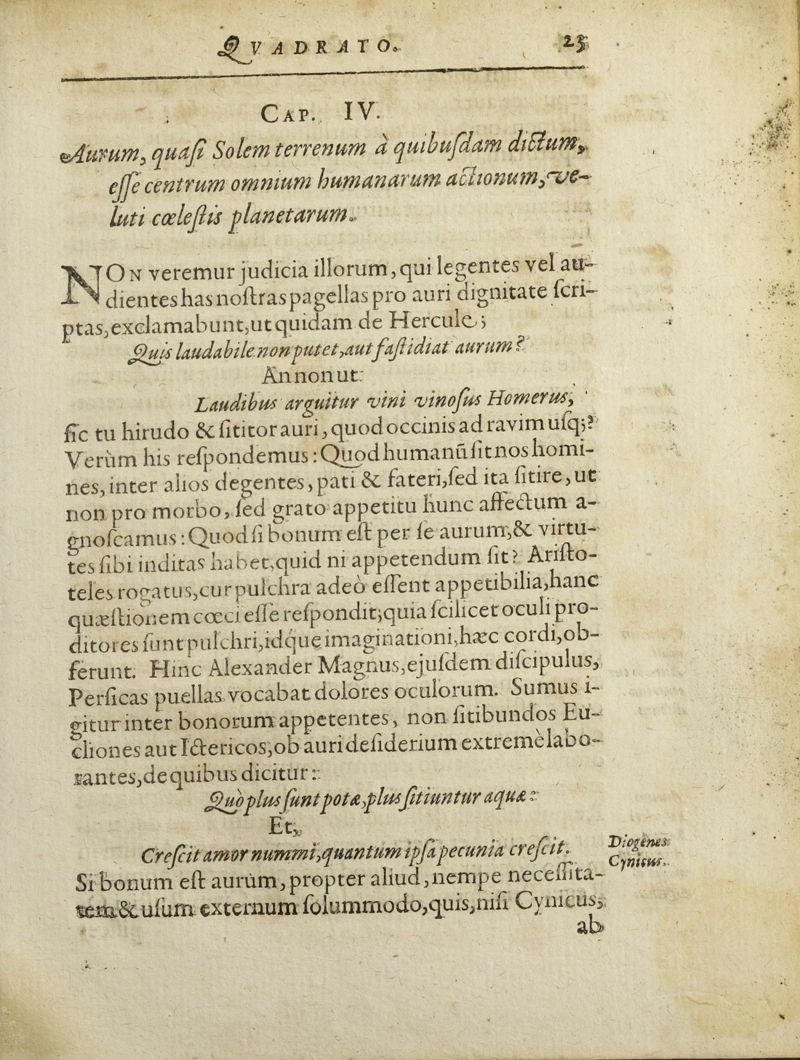 QVADRATO. 25
CAP. IV.
Aurum, quaſi Solem terrenum à quibuſdam dictum,
eſſe centrum omnium humanarum actionum, ve-
luti cœleſtis planetarum.
NON veremur judicia illorum, qui legentes vel au-
dientes has noſtras pagellas pro auri dignitate ſcri-
ptas, exclamabunt, ut quidam de Hercule;
Quis laudabile non putet, aut faſtidiat aurum?
An non ut:
Laudibus arguitur vini vinoſus Homerus,
ſic tu hirudo & ſititor auri, quod occinis ad ravim uſq;?
Verùm his reſpondemus: Quod humanũ ſit nos homi-
nes, inter alios degentes, pati & fateri, ſed ita ſitire, ut
non pro morbo, ſed grato appetitu hunc affectum a-
gnoſcamus: Quod ſi bonum eſt per ſe aurum, & virtu-
tes ſibi inditas habet, quid ni appetendum ſit? Ariſto-
teles rogatus, cur pulchra adeò eſſent appetibilia, hanc
quæſtionem cœci eſſe reſpondit; quia ſcilicet oculi pro-
ditores ſunt pulchri, idque imaginationi, hæc cordi, ob-
ferunt. Hinc Alexander Magnus, ejuſdem diſcipulus,
Perſicas puellas vocabat dolores oculorum. Sumus i-
gitur inter bonorum appetentes, non ſitibundos Eu-
cliones aut Ictericos, ob auri deſiderium extremè labo-
rantes, de quibus dicitur:
Quò plus ſunt potæ, plus ſitiuntur aquæ:
Et,
Creſcit amor nummi, quantum ipſa pecunia creſcit.
Diogenes
Cynicus.
Si bonum eſt aurum, propter aliud, nempe neceſſita-
tem & uſum externum ſolummodo, quis, niſi Cynicus,
ab